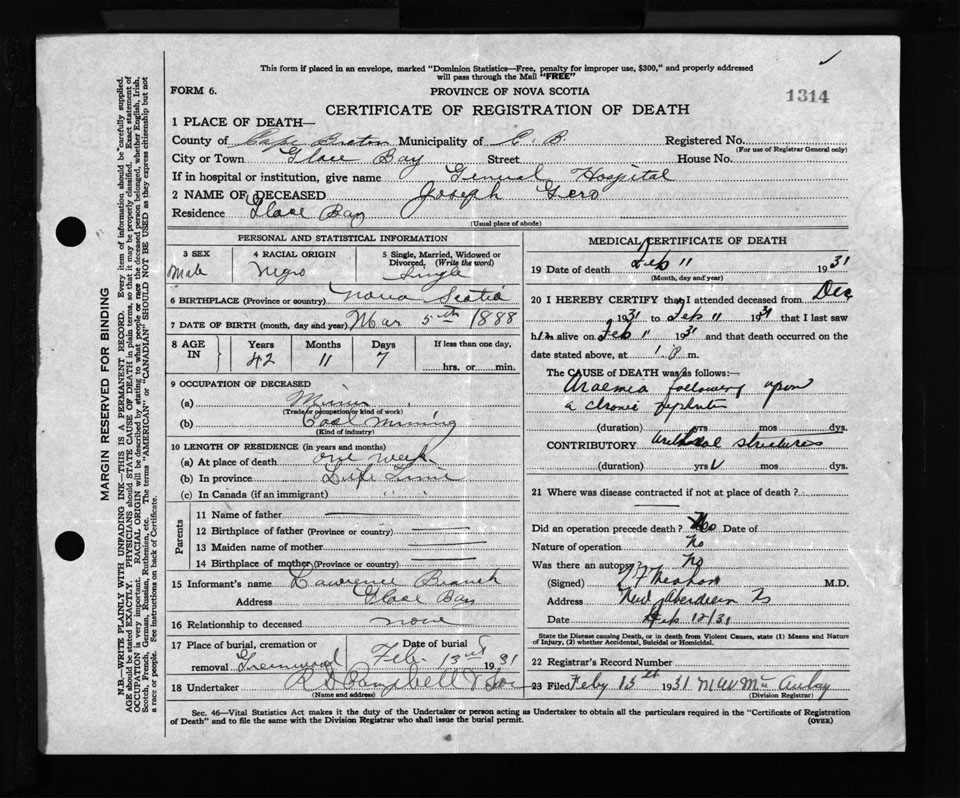 This form if placed in an envelope, marked "Dominion Statistics—Free, penalty for improper use, $300," and properly addressed
will pass through the Mail "FREE"
FORM 6. PROVINCE OF NOVA SCOTIA 1314
CERTIFICATE OF REGISTRATION OF DEATH
1 PLACE OF DEATH—
County of Cape Breton Municipality of C. B. Registered No.
(For use of Registrar General only)
City or Town Glace Bay Street House No.
If in hospital or institution, give name General Hospital
2 NAME OF DECEASED Joseph Gero
Residence Glace Bay
(Usual place of abode)
PERSONAL AND STATISTICAL INFORMATION
3 SEX 4 RACIAL ORIGIN 5 Single, Married, Widowed or Divorced. (Write the word)
Male Negro Single
6 BIRTHPLACE (Province or country) Nova Scotia
7 DATE OF BIRTH (month, day and year) Mar 5th 1888
8 AGE IN Years Months Days If less than one day,
42 11 7 hrs. or min.
9 OCCUPATION OF DECEASED
(a) Miner
(Trade or occupation or kind of work)
(b) Coal Mining
(Kind of industry)
10 LENGTH OF RESIDENCE (in years and months)
(a) At place of death one week
(b) In province Life Time
(c) In Canada (if an immigrant) " "
Parents
11 Name of father
12 Birthplace of father (Province or country)
13 Maiden name of mother
14 Birthplace of mother (Province or country)
15 Informant's name Lawrence Branch
Address Glace Bay
16 Relationship to deceased none
17 Place of burial, cremation or removal Greenwood Date of burial Feb. 13 1931
18 Undertaker Campbell
(Name and address)
MEDICAL CERTIFICATE OF DEATH
19 Date of death Feb 11 1931
(Month, day and year)
20 I HEREBY CERTIFY that I attended deceased from Dec
1931 to Feb 11 1931 that I last saw
h im alive on Feb 11 1931 and that death occurred on the
date stated above, at 1 P m.
The CAUSE of DEATH was as follows:—
Uraemia following upon
a chronic nephritis
(duration) yrs. mos. dys.
CONTRIBUTORY urethral strictures
(duration) yrs mos dys.
21 Where was disease contracted if not at place of death?
Did an operation precede death? No Date of
Nature of operation No
Was there an autopsy? No
(Signed) M.D.
Address New Aberdeen NS
Date Feb 12/31
State the Disease causing Death, or in death from Violent Causes, state (1) Means and Nature of Injury, (2) whether Accidental, Suicidal or Homicidal.
22 Registrar's Record Number
23 Filed Feby 15th 1931
(Division Registrar)
Sec. 46—Vital Statistics Act makes it the duty of the Undertaker or person acting as Undertaker to obtain all the particulars required in the "Certificate of Registration
of Death" and to file the same with the Division Registrar who shall issue the burial permit. (OVER)
MARGIN RESERVED FOR BINDING
N.B.—WRITE PLAINLY WITH UNFADING INK—THIS IS A PERMANENT RECORD. Every item of information should be carefully supplied.
AGE should be stated EXACTLY. PHYSICIANS should STATE CAUSE OF DEATH in plain terms, so that it may be properly classified. Exact statement of
OCCUPATION is very important. RACIAL ORIGIN will be described by stating to what people or race the deceased person belonged, whether English, Irish,
Scotch, French, German, Russian, Ruthenian, etc. The terms "AMERICAN" or "CANADIAN" SHOULD NOT BE USED as they express citizenship but not
a race or people. See instructions on back of Certificate.